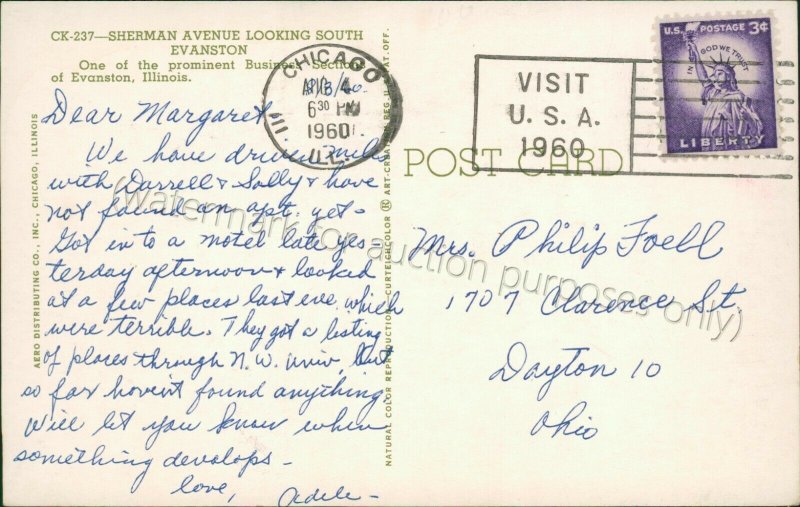 CK-237—SHERMAN AVENUE LOOKING SOUTH
EVANSTON
One of the prominent Business Sections
of Evanston, Illinois.
Dear Margaret
We have driven miles
with Darrell & Sally & have
not found an apt. yet -
Got into a motel late yes-
terday afternoon & looked
at a few places last eve. which
were terrible. They got a listing
of places through N.W. Univ, but
so far hovin't found anything
Will let you know when
something devolops -
love,
Adele -
AERO DISTRIBUTING CO., INC., CHICAGO, ILLINOIS
NATURAL COLOR REPRODUCTION CURTEICHCOLOR ® ART-CREATION REG U.S. PAT. OFF.
CHICAGO
6 30 PM
1960
ILL.
VISIT
U. S. A.
1960
U.S. POSTAGE 3¢
IN GOD WE TRUST
LIBERTY
POST CARD
Mrs. Philip Foell
1707 Clarence St.
Dayton 10
Ohio
(Watermark for auction purposes only)